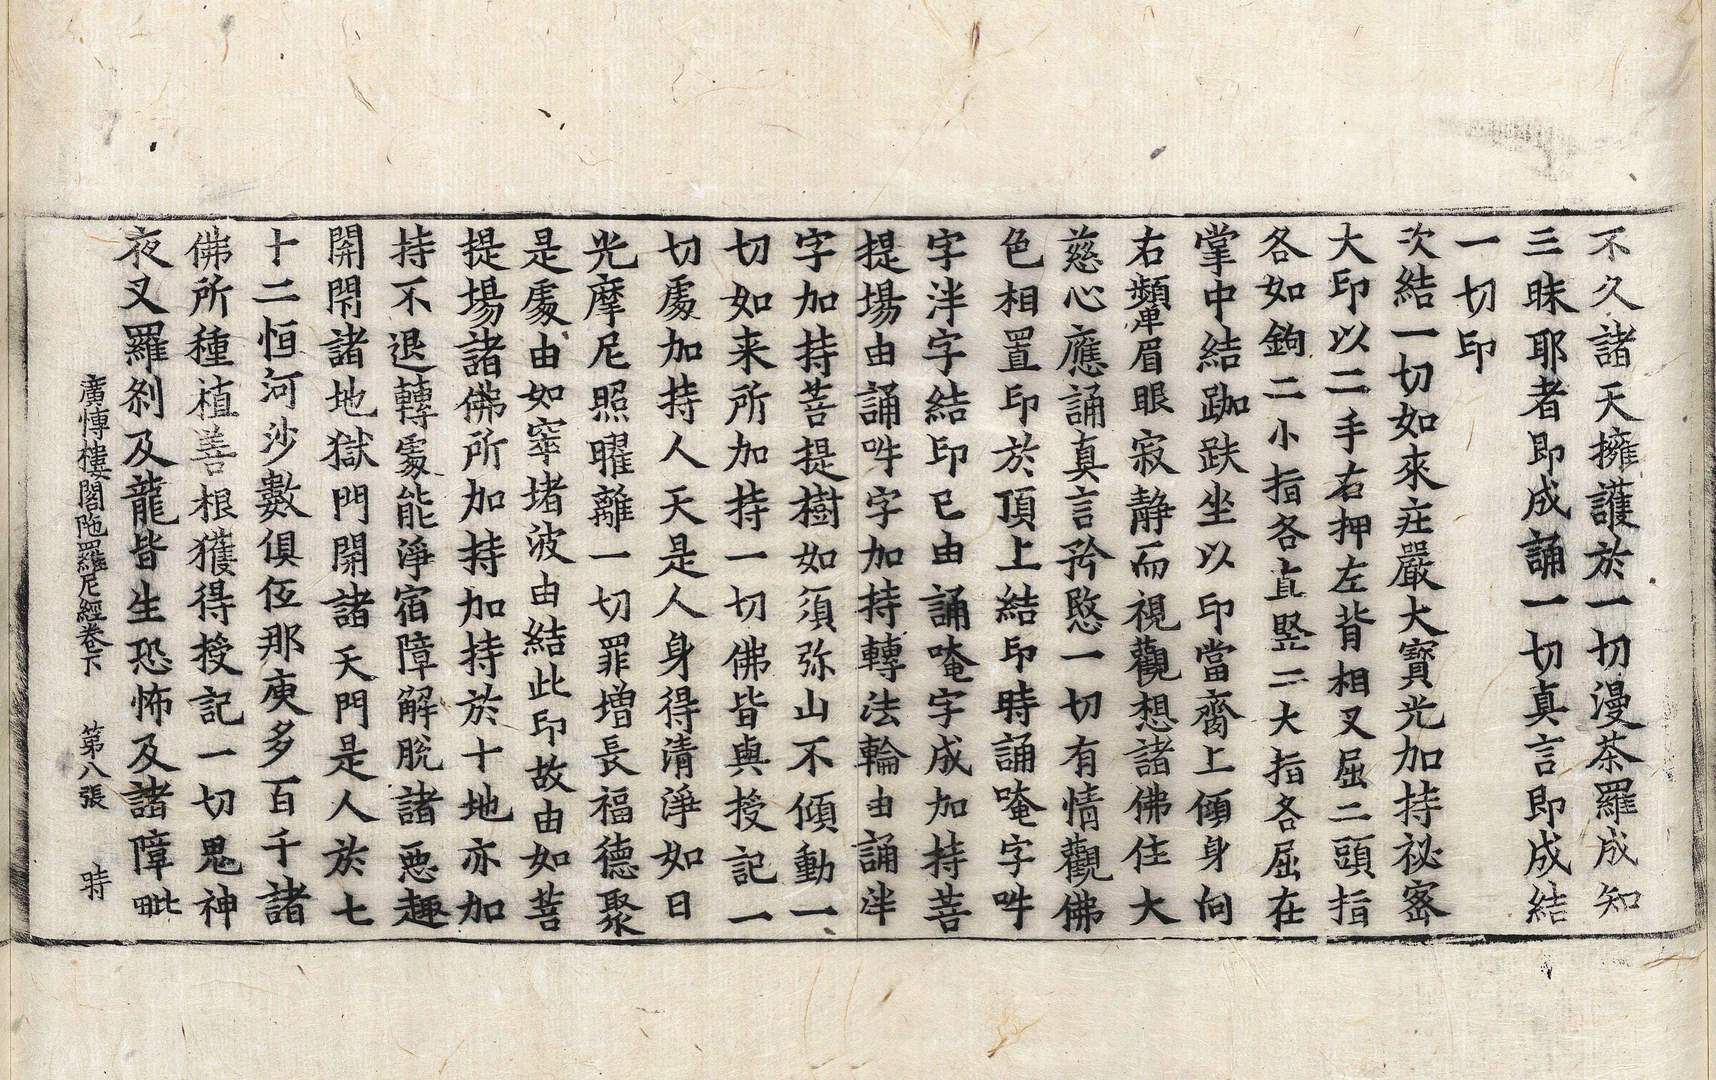 不久諸天擁護於一切漫茶羅成知
三昧耶者即成誦一切真言即成結
一切印
次結一切如來莊嚴大寶光加持祕密
大印以二手右押左背相叉屈二頭指
各如鉤二小指各直竪二大指各屈在
掌中結跏趺坐以印當齎上傾身向
右頻眉眼寂靜而視觀想諸佛住大
慈心應誦真言矜愍一切有情觀佛
色相置印於頂上結印時誦唵字吽
字泮字結印已由誦唵字成加持菩
提場由誦吽字加持轉法輪由誦泮
字加持菩提樹如須弥山不傾動一
切如来所加持一切佛皆與授記一
切處加持人天是人身得清淨如日
光摩尼照曜離一切罪增長福德聚
是處由如窣堵波由結此印故由如菩
提場諸佛所加持加持於十地亦加
持不退轉處能淨宿障解脫諸惡趣
開閇諸地獄門開諸天門是人於七
十二恒河沙數俱伍那庾多百千諸
佛所種植善根獲得授記一切鬼神
夜叉羅刹及龍皆生恐怖及諸障毗
廣慱樓閣陁羅尼經卷下 第八張 時